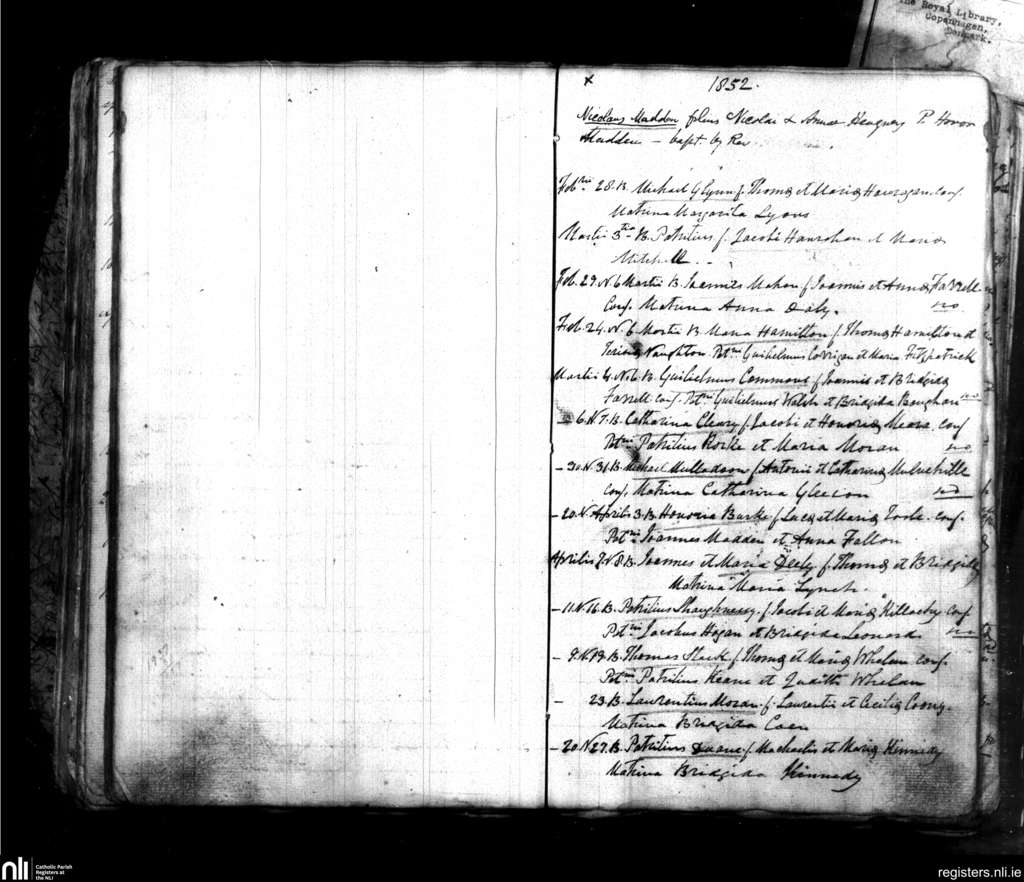 The Royal Library,
Copenhagen,
Denmark.
x 1852.
Nicolaus Madden filius Nicolai & Annae P. Honor
Madden - bapt. by Rev
28. B. Michael Glynn f. Thomae et Maria conj.
Matrina Margarita Lyons
Martii 3 B. Patritius f. Jacobi Hanrahan et Maria
Mitchell
Feb. 29. N. 6 Martii B. Joannes Mahon f. Joannis et Anna Farrell
Conj. Matrina Anna Daly. no
Feb. 24. N. 6 Martii B. Maria Hamilton f. Thomae Hamilton et
Naughton. Ptni Guilielmus Corrigan et Maria Fitzpatrick
Martii 4. N. 6. B. Guilielmus Commons f. Joannis et Brigida
Farrell conj. Ptni Guilielmus Walsh et Bridgida
6. N. 7. B. Catharina Cleary f. Jacobi et Honoria Meara. conj
Ptni Patritius Rorke et Maria Moran no
- 30. N. 31. B. Michael f. Antonii et Catharina
conj. Matrina Catharina Gleeson no
- 20. N. Aprilis 3. B. Honoria Burke f. Luca et Maria conj.
Ptni Joannes Madden et Anna Fallon
Aprilis 7. N. 8. B. Joannes et Maria Deely f. Thoma et Bridgida
Matrina Maria Lynch.
- 11. N. 16. B. Patritius Shaughnessy. f. Jacobi et Maria conj
Ptni Jacobus Hogan et Bridgida Leonard no
- 9. N. 19. B. Thomas f. Thoma et Maria Whelan conj.
Ptni Patritius Keane et Judith Whelan
- 23. B. Laurentius Moran f. Laurentii et Cecilia
Matrina Bridgida Coen
- 20. N. 27. B. Patritius Duane f. Michaelis et Maria Kennedy
Matrina Bridgida Kennedy
nli
Catholic Parish
Registers at
the NLI
registers.nli.ie